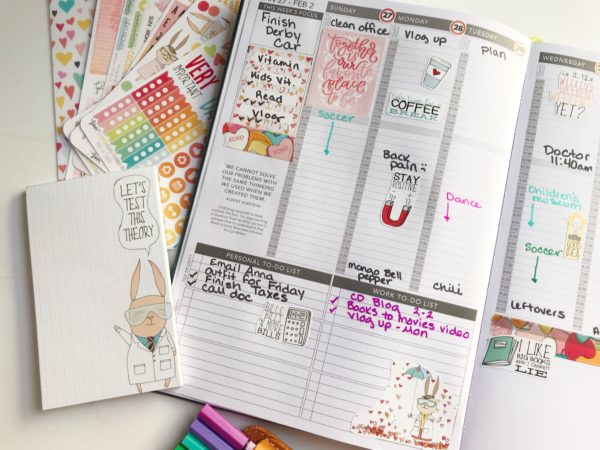 JAN 27 - FEB 2
THIS WEEK'S FOCUS
Finish
Derby
Car
Vitamin
Kids Vit.
Read
Vlog
XOXO
XOXO
WE CANNOT SOLVE
OUR PROBLEMS WITH
THE SAME THINKING
WE USED WHEN WE
CREATED THEM.
ALBERT EINSTEIN
SUNDAY
27
clean office
together
is our
favorite
place
to be
Soccer
MONDAY
28
Vlog up
COFFEE
BREAK
Back
pain :(
STAY
POSITIVE
mango Bell
pepper
TUESDAY
29
plan
Dance
chili
WEDNESDAY
is it the
YET?
Doctor
11:40am
Children's
museum
Soccer
Leftovers
I LIKE
BIG BOOKS
AND I CANNOT
LIE
PERSONAL TO-DO LIST
Email Anna
✓ outfit for Friday
✓ Finish Taxes
✓ call doc
BILLS
WORK TO-DO LIST
✓ CD Blog 2-2
✓ Books to movies video
✓ Vlog up - Mon
LET'S
TEST
THIS
THEORY
VERY
IMPORTANT
SUN
MON